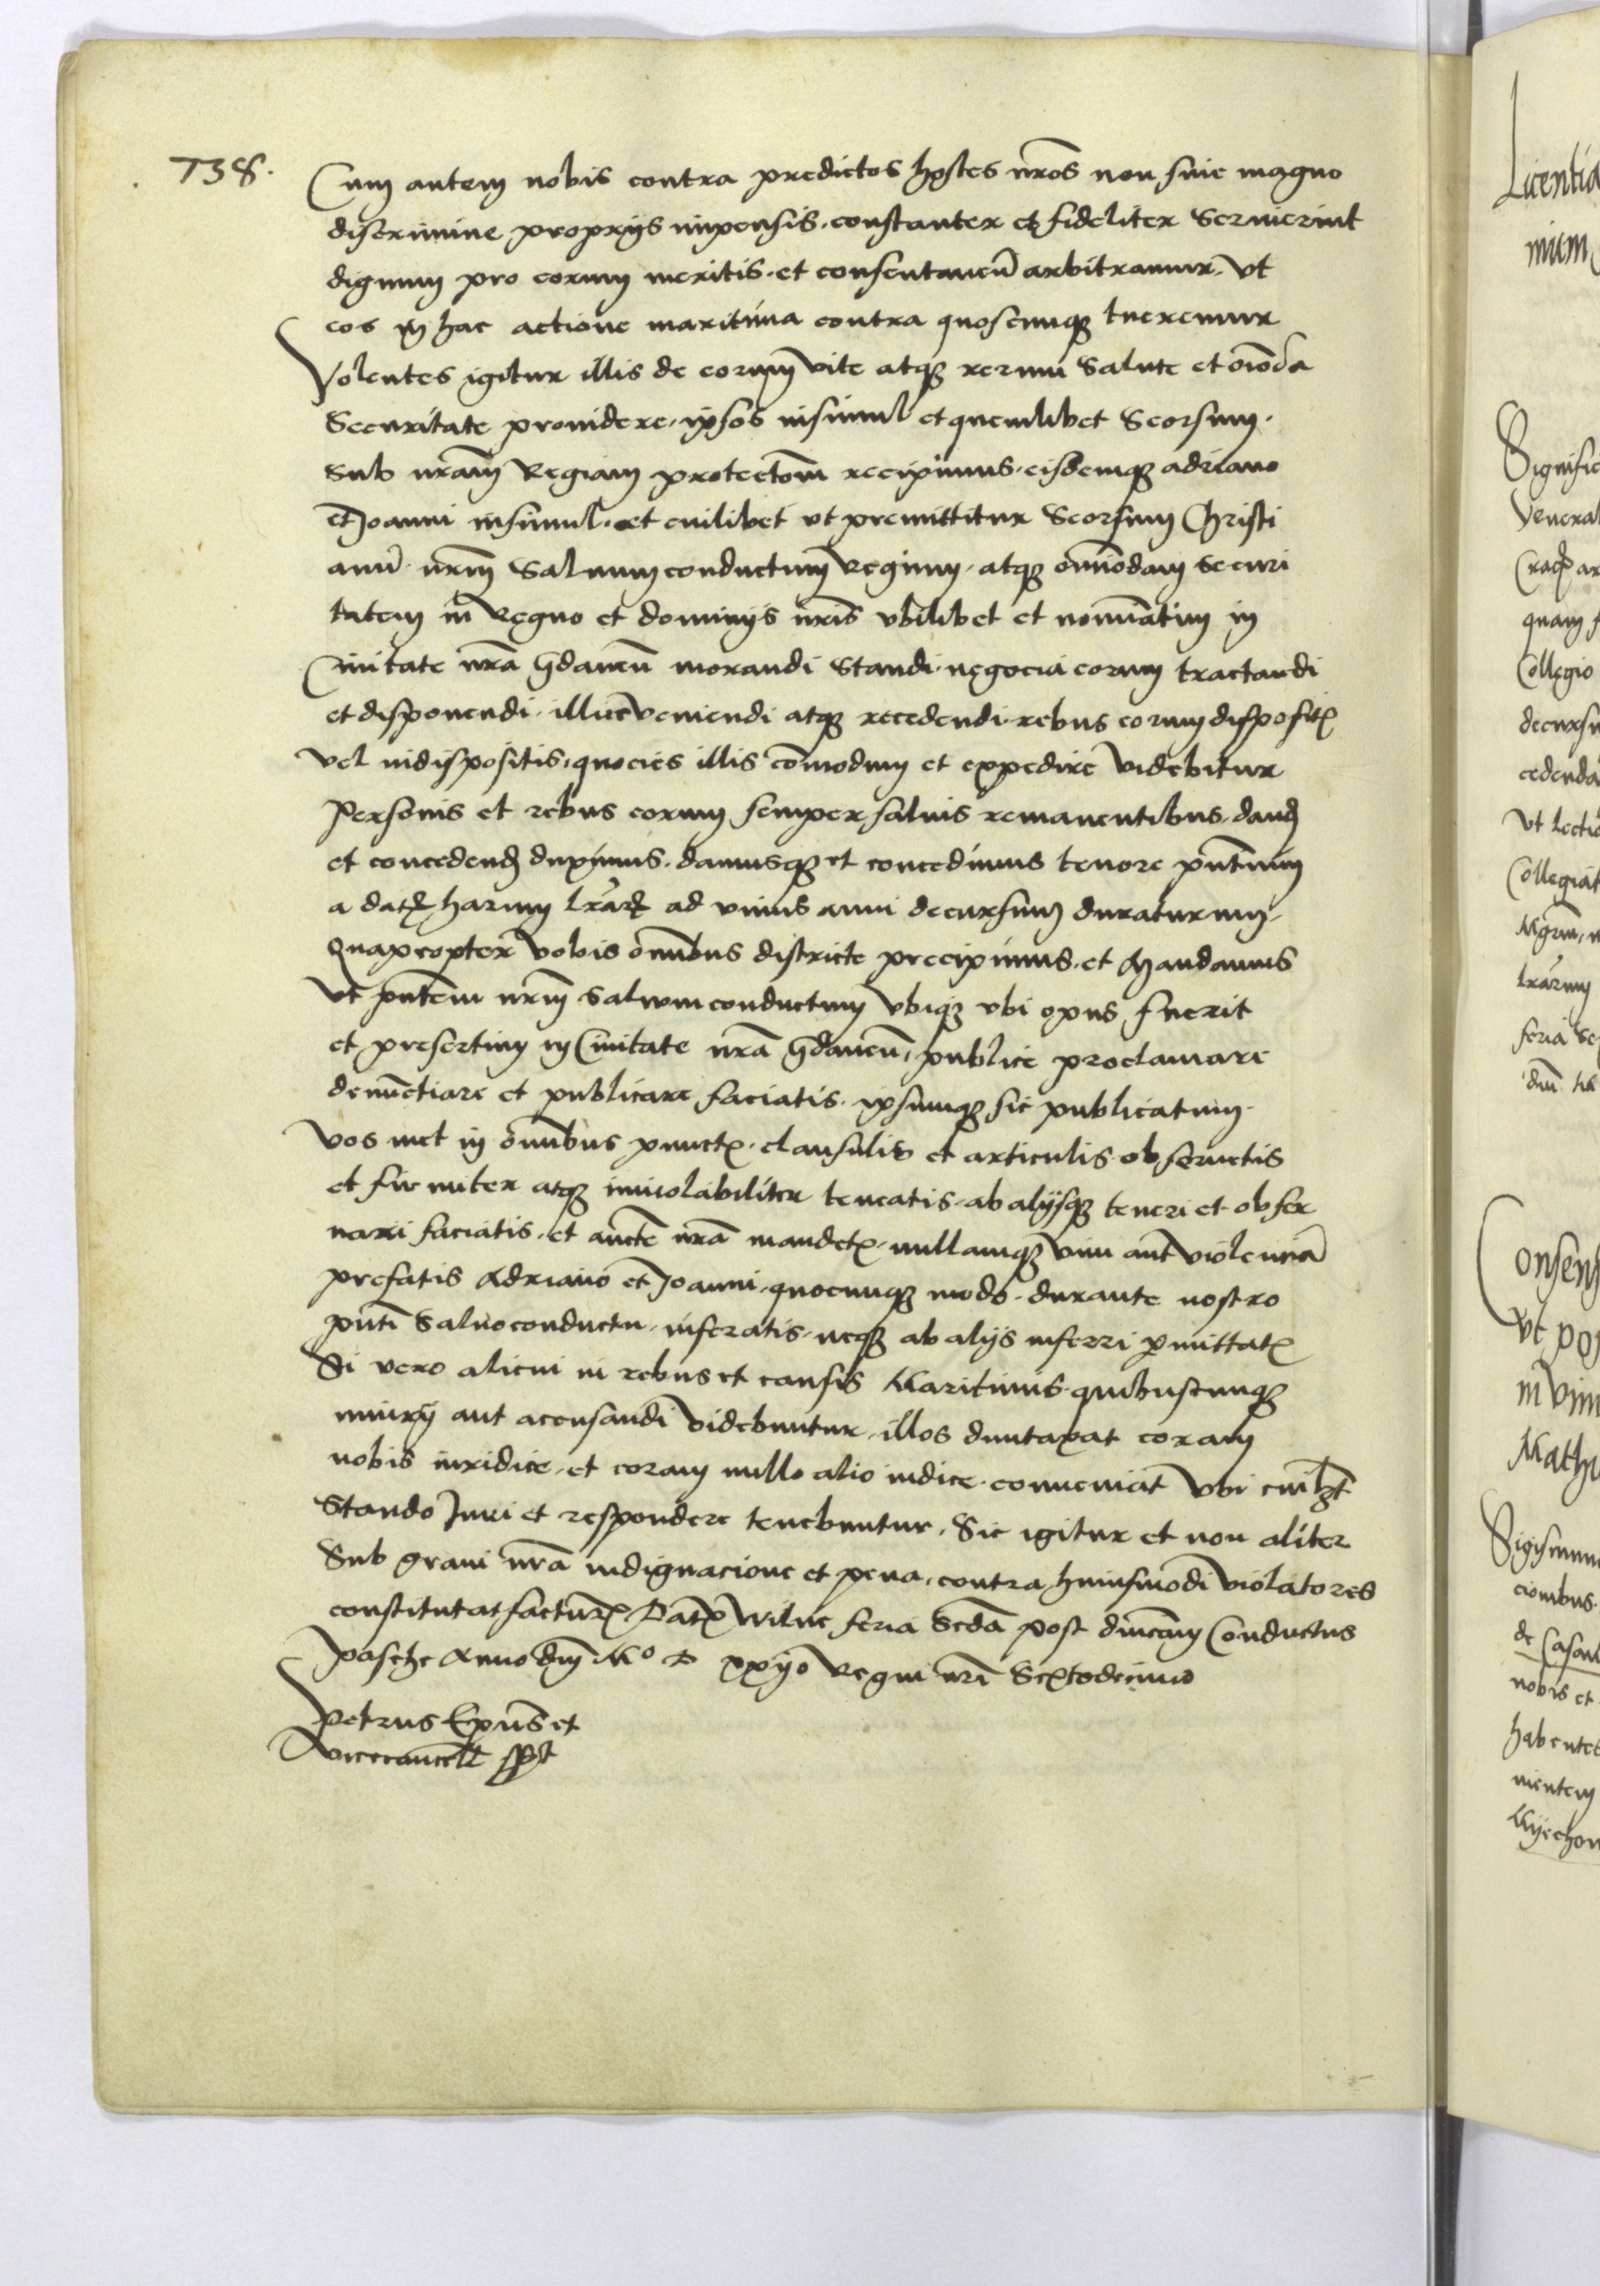 738.
Cum autem nobis contra predictos hostes nr̄os non sine magno
discrimine proprijs impensis constanter et fideliter servierint
dignum pro eorum meritis et consentaneū arbitramur ut
eos in hac actione maritima contra quoscumq tueremur
Volentes igitur illis de eorum vite atq rerum salute et oīoda
securitate providere ipsos insimul et quemlibet seorsum
sub nrām Regiam protectōm recipimus eisdemq adriano
et Joanni insimul et cuilibet ut premittitur Seorsum Christi
anū nrm̄ Salvumconductum Regium atq omīodam securi
tatem in Regno et dominijs nrīs ubilibet et nomīatim in
Civitate nrā Gdaneñ morandi standi negocia eorum tractandi
et disponendi illuc veniendi atq recedendi rebus eorum disposit
vel indispositis quocies illis cōmodum et expedire videbitur
Personis et rebus eorum semper salvis remanentibus dand
et concedend duximus damusq et concedimus tenore pn̄tium
a dat harum lrar ad unius anni decursum duraturum
Quapropter vobis om̄ibus districte precipimus et mandamus
Ut pn̄tem nrm̄ Salvumconductum ubiq ubi opus fuerit
et presertim in Civitate nrā Gdaneñ publice proclamare
denūctiare et publicare faciatis ipsumq sic publicatum
vos met in om̄ibus punct clausulis et articulis observetis
et firmiter atq inviolabiliter teneatis ab alijsq teneri et obser
vari faciatis et aucte nrā mandet nullamq vim aut violenciā
prefatis Adriano et Joanni quocumq modo durante nostro
pn̄ti Salvoconductu inferatis neq ab alijs inferri pmittat
Si vero alicui in rebus et causis Maritimis quibuscumq
iniurij aut accusandi videbuntur illos duntaxat coram
nobis iuridice et coram nullo alio iudice conveniat Ubi cuilzt
Stando Juri et respondere tenebuntur Sic igitur et non aliter
Sub gravi nrā indignacione et pena contra huiusmodi violatores
constituta factur Dat Vilne feria Scdā post dn̄icam Conductus
Pasche Anno dnī Mo D xxijo Regni nrī Sextodecimo
Petrus Ep̄us et
Vicecancell sst